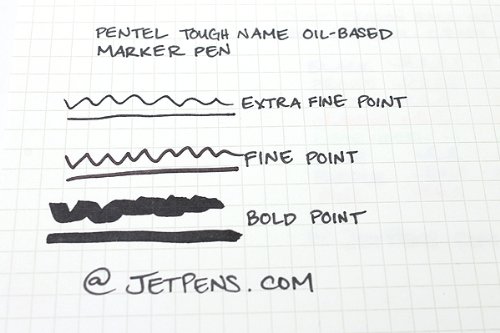 PENTEL TOUGH NAME OIL-BASED
MARKER PEN
EXTRA FINE POINT
FINE POINT
BOLD POINT
@ JETPENS.COM